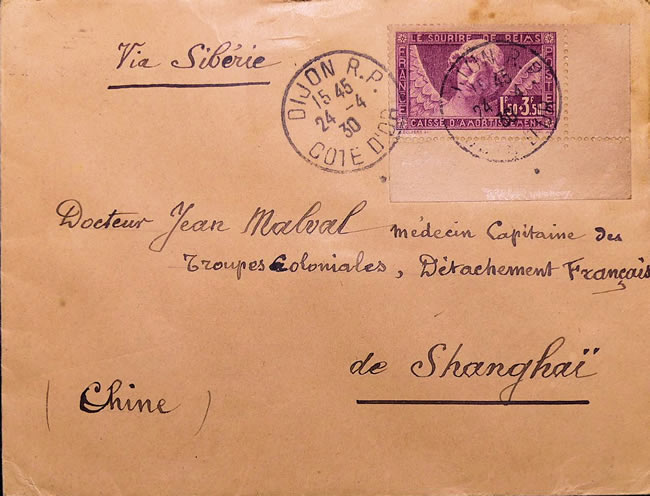 Via Sibérie
DIJON R.P.
15 45
24 - 4
30
COTE D'OR
LE SOURIRE DE REIMS
FRANCE
POSTES
1F50+3F50
CAISSE D'AMORTISSEMENT
15 45
24 - 4
30
Docteur Jean Malval médecin Capitaine des
Troupes Coloniales, Détachement Français
de Shanghaï
(Chine)